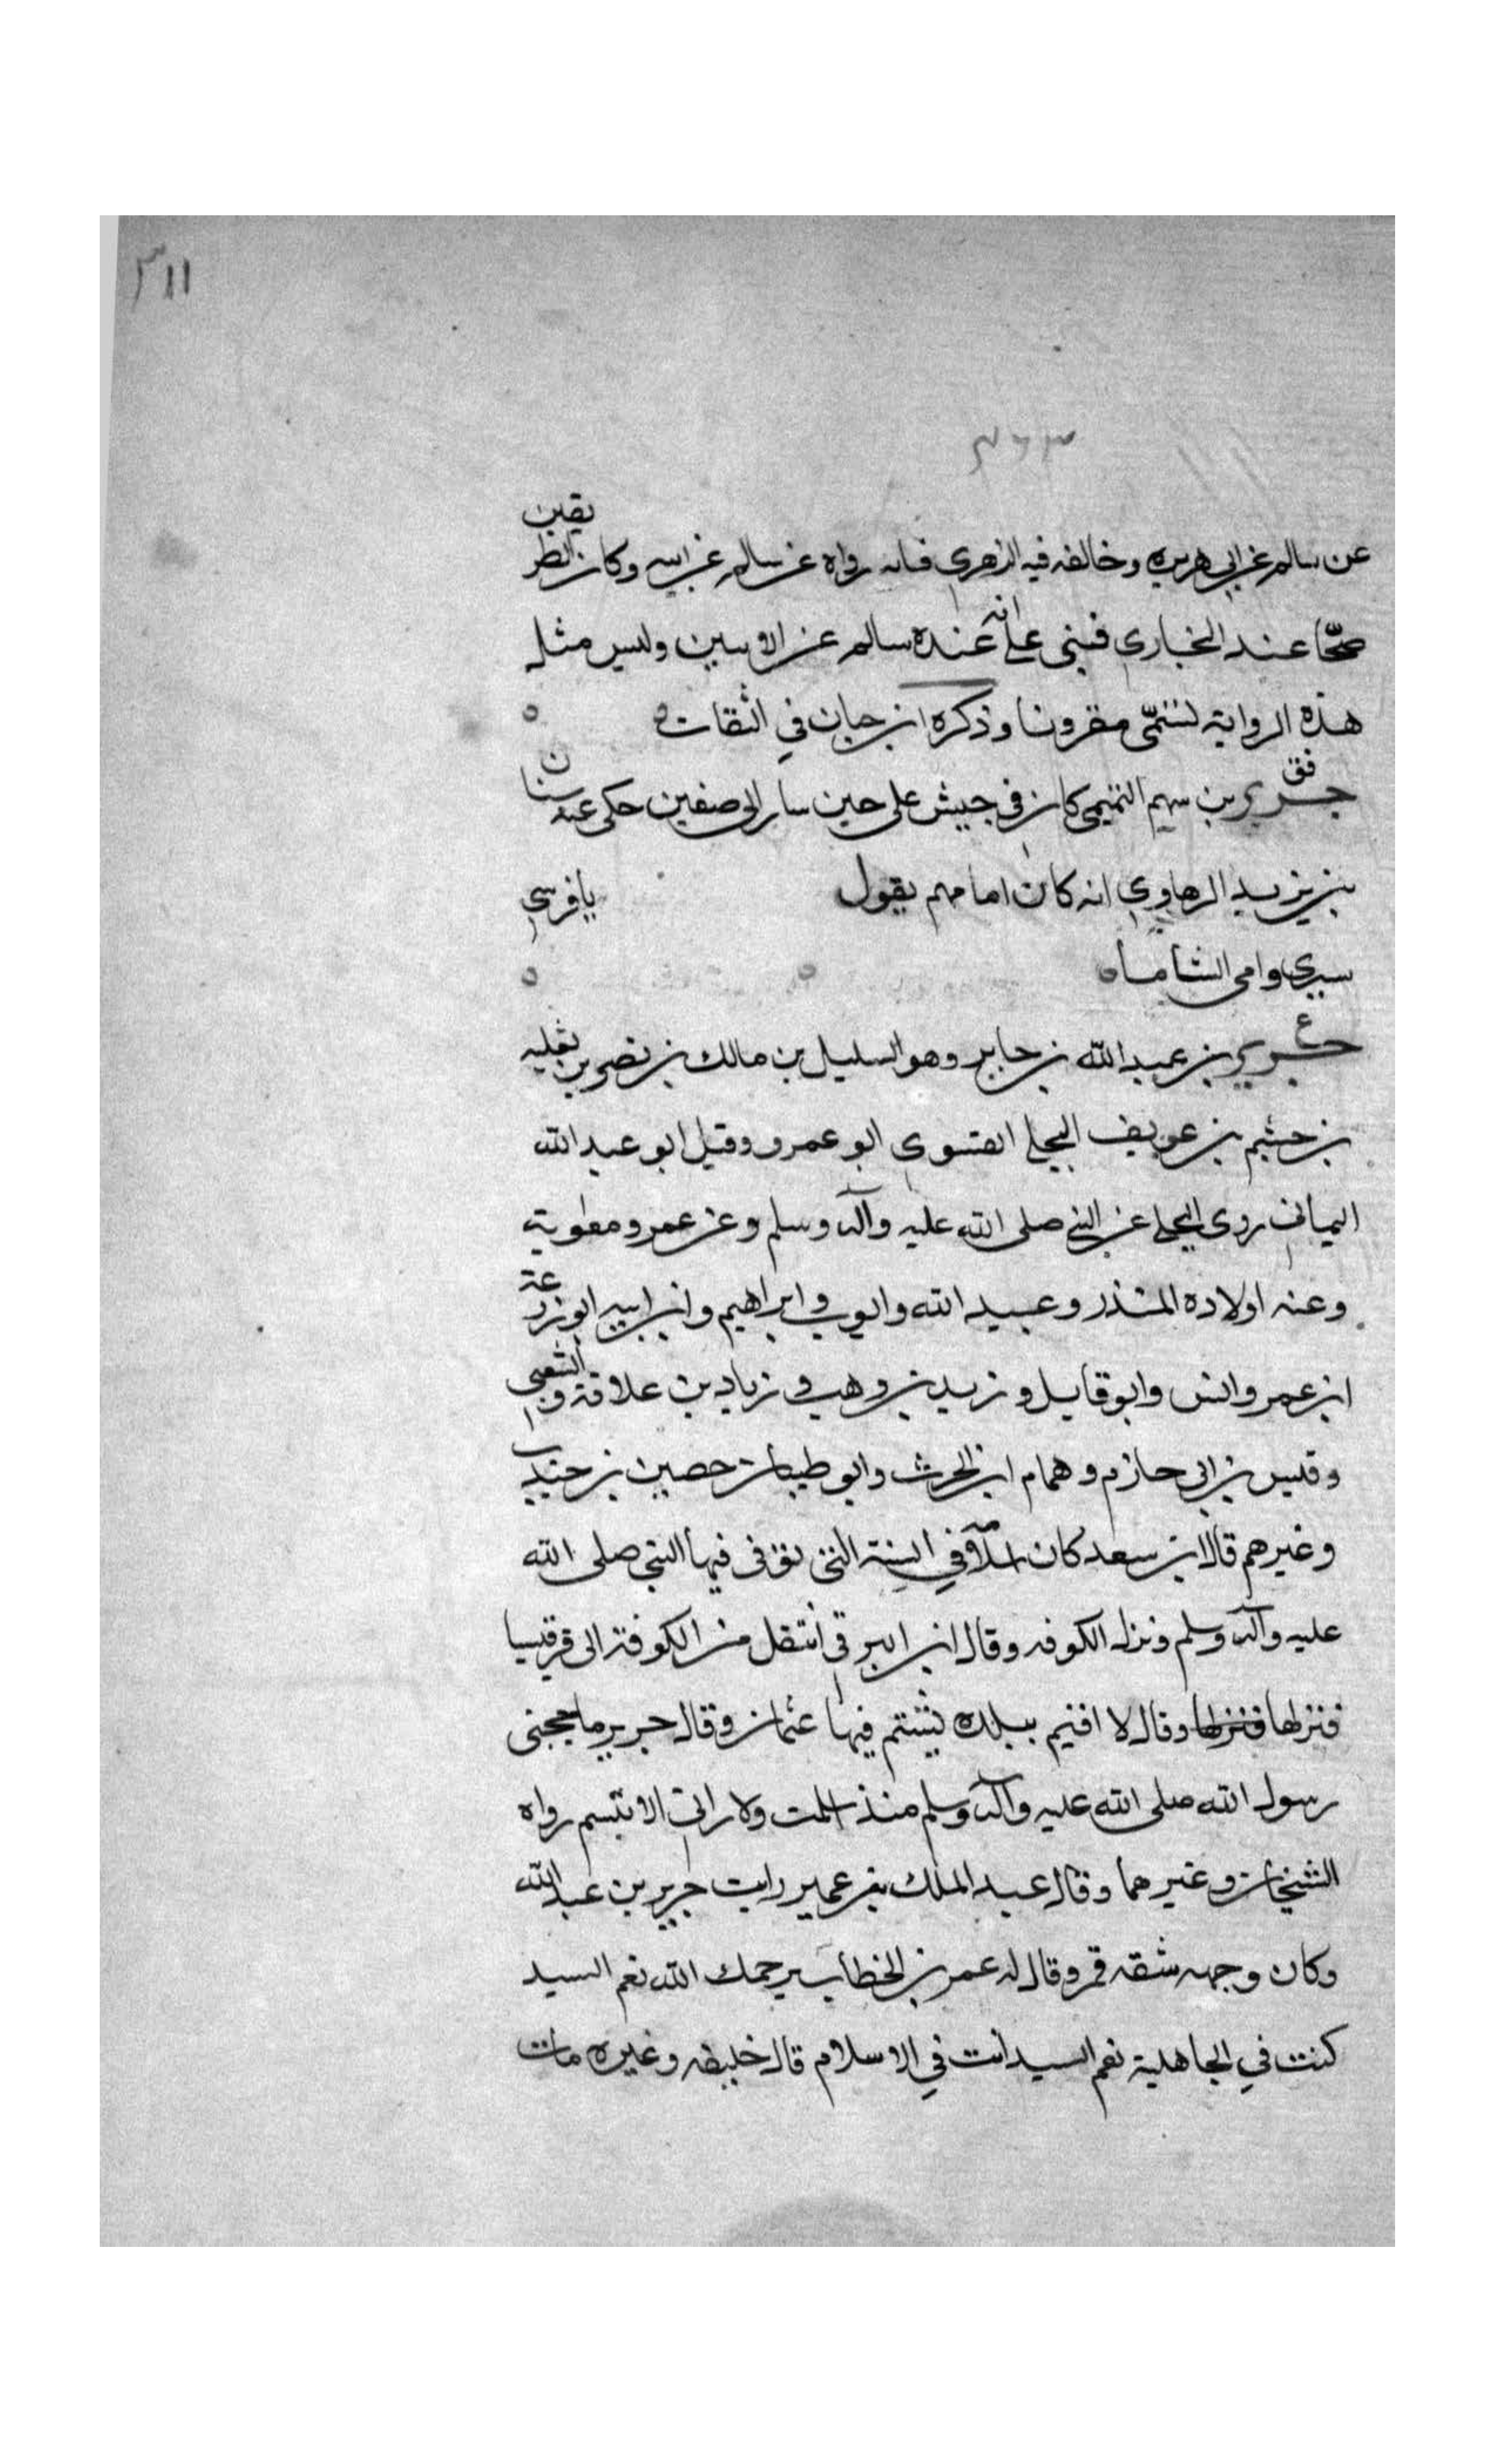 ٣١١
٣٦٣
عن سالم عن ابي هريره وخالفه فيه الزهري فانه رواه عن سالم عن ابيه وكان الطريقين
صحّا عند البخاري فبنى على انه عنده سالم عن الابين وليس مثل
هذه الرواية تسمّى مقرونا وذكره ابن حبان في الثقات ه ه
فق
جرير بن سهم التميمي كان في جيش على حين سار الى صفين حكى عنه سنان
بن يزيد الرهاوي انه كان امامهم يقول يا فرسي
سيري وامي الشاما ه ه ه
ع
جرير بن عبد الله بن جابر وهو السليل بن مالك بن نصر بن ثعلبه
بن جشم بن عويف البجلي القسري ابو عمرو وقيل ابو عبد الله
اليماني روى البجلي عن النبي صلى الله عليه وآله وسلم وعن عمر ومعوية
وعنه اولاده المنذر وعبيد الله وايوب وابراهيم وابن ابنه ابو زرعة
ابن عمر وانس وابو قايل وزيد بن وهب وزياد بن علاقة والشعبي
وقيس بن ابي حازم وهمام ابن الحرث وابو ظبيان حصين بن جندب
وغيرهم قال ابن سعد كان اسلامه في السنة التي توفى فيها النبي صلى الله
عليه وآله وسلم ونزل الكوفه وقال ابن البرقي انتقل من الكوفة الى قرقيسيا
فنزلها فنزلها وقال لا اقيم ببلدة يشتم فيها عثمان وقال جرير ما حجبني
رسول الله صلى الله عليه وآله وسلم منذ اسلمت ولا راني الا تبسم رواه
الشيخان وغيرهما وقال عبد الملك بن عمير رايت جرير بن عبد الله
وكان وجهه شقه قمر وقال له عمر بن الخطاب يرحمك الله نعم السيد
كنت في الجاهلية نعم السيد انت في الاسلام قال خليفه وغيره مات